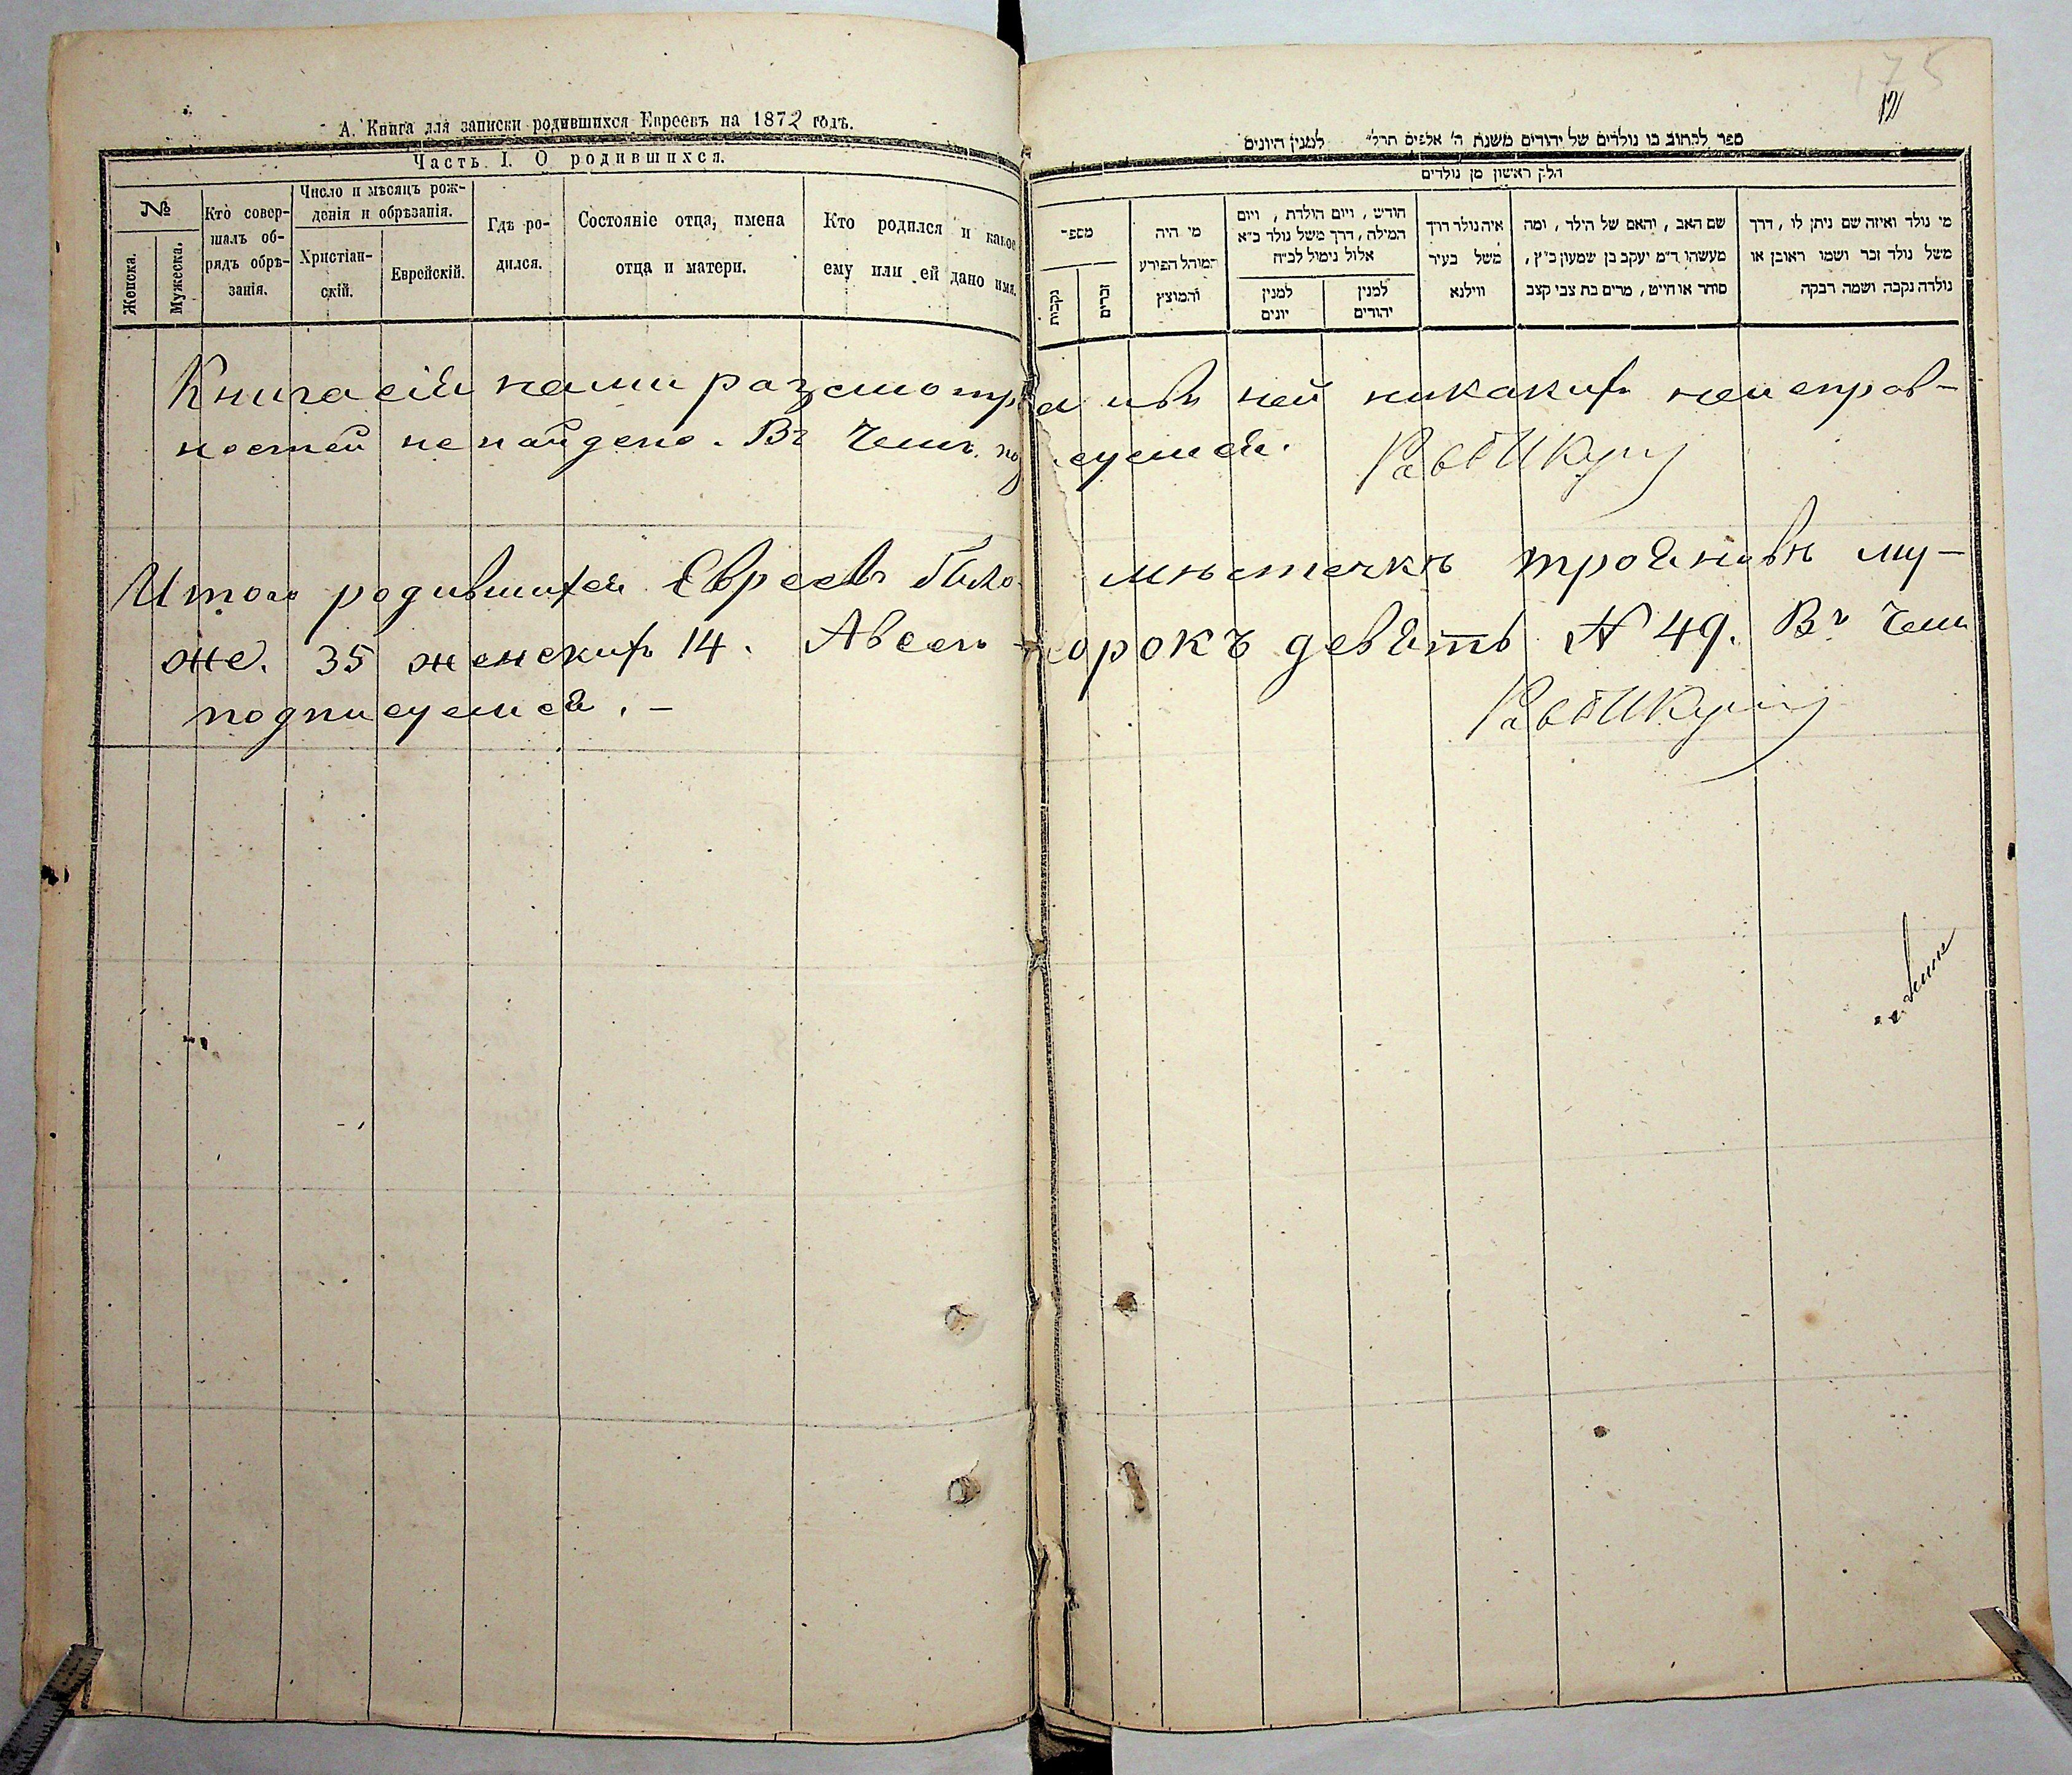 А. Книга для записки родившихся Евреевъ на 1872 годъ.
Часть I. О родившихся.
№
Женска.
Мужеска.
Кто совер-
шалъ об-
рядъ обрѣ-
занія.
Число и мѣсяцъ рож-
денія и обрѣзанія.
Христіан-
скій.
Еврейскій.
Гдѣ ро-
дился.
Состояніе отца, имена
отца и матери.
Кто родился и какое
ему или ей дано имя.
175
12
ספר לכתוב בו נולדים של יהודים משנת ה' אלפים תרל" למנין היונים
חלק ראשון מן נולדים
מספר
נקבות
זכרים
מי היה
המוהל הפורע
והמוצץ
חודש , ויום הולדת , ויום
המילה , דרך משל נולד כ"א
אלול נימול לכ"ח
למנין
יונים
למנין
יהודים
איה נולד דרך
משל בעיר
ווילנא
שם האב , והאם של הילד , ומה
מעשהו ד"מ יעקב בן שמעון כ"ץ ,
סוחר או חייט , מרים בת צבי קצב
מי נולד ואיזה שם ניתן לו , דרך
משל נולד זכר ושמו ראובן או
נולדה נקבה ושמה רבקה
Книга сія нами разсмотр а и въ ней никакихъ неисправ-
ностей не найдено. Въ чемъ под суемся.
Итого родившихся Евреевъ было мѣстечкѣ Трояновѣ му-
же. 35 женскихъ 14. А всего сорокъ девять № 49. Въ чем
подписуемся. –